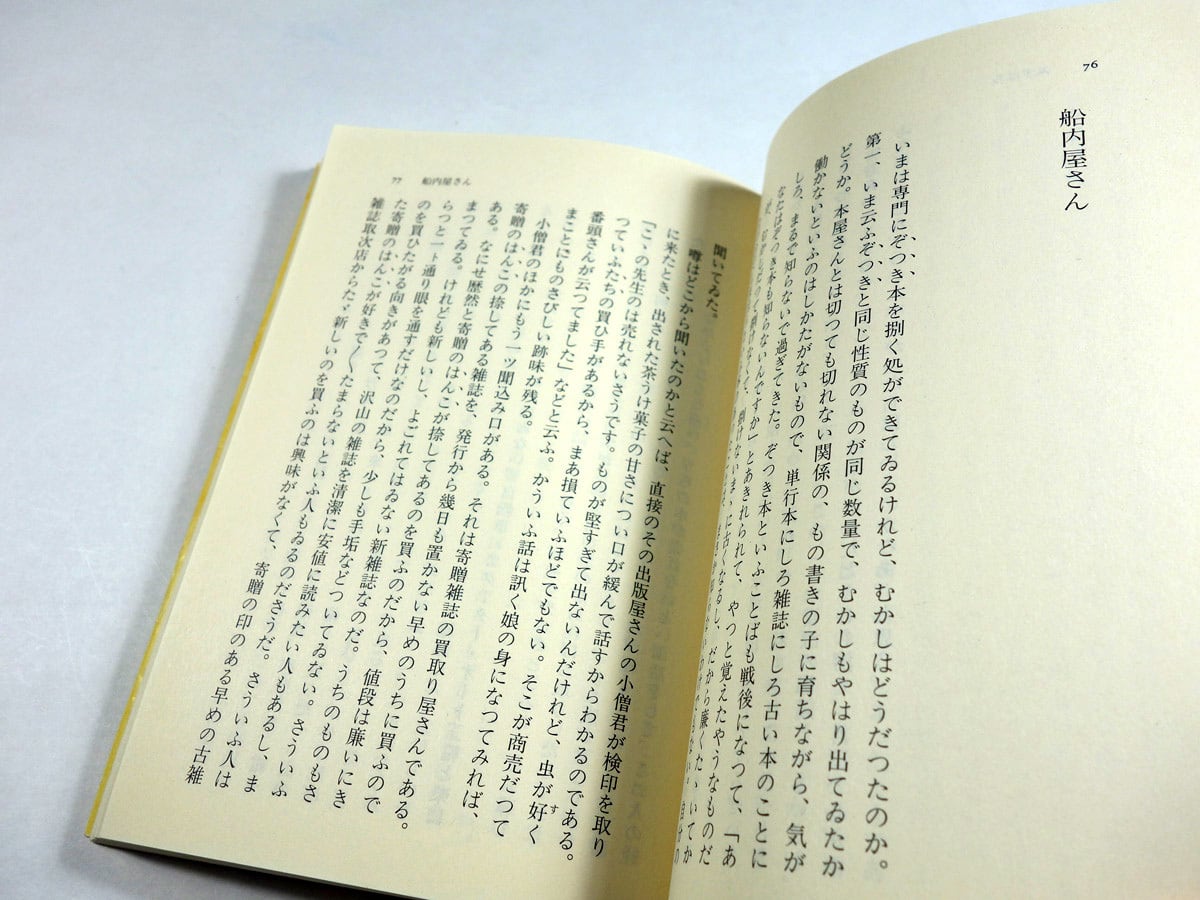 76
船内屋さん
いまは専門にぞつき本を捌く処ができてゐるけれど、むかしはどうだつたのか。
第一、いま云ふぞつきと同じ性質のものが同じ数量で、むかしもやはり出てゐたか
どうか。本屋さんとは切つても切れない関係の、もの書きの子に育ちながら、気が
働かないといふのはしかたがないもので、単行本にしろ雑誌にしろ古い本のことに
しろ、まるで知らないで過ぎてきた。ぞつき本といふことばも戦後になつて、「あ
なたはぞつき本も知らないんですか」とあきれられて、やつと覚えたやうなものだ
77 船内屋さん
聞いてゐた。
噂はどこから聞いたのかと云へば、直接のその出版屋さんの小僧君が検印を取り
に来たとき、出された茶うけ菓子の甘さについ口が緩んで話すからわかるのである。
「こゝの先生のは売れないさうです。ものが堅すぎて出ないんだけれど、虫が好く
つていふたちの買ひ手があるから、まあ損ていふほどでもない。そこが商売だつて
番頭さんが云つてました」などと云ふ。かういふ話は訊く娘の身になつてみれば、
まことにものさびしい跡味が残る。
小僧君のほかにもう一ツ聞込み口がある。それは寄贈雑誌の買取り屋さんである。
寄贈のはんこの捺してある雑誌を、発行から幾日も置かない早めのうちに買ふので
ある。なにせ歴然と寄贈のはんこが捺してあるのを買ふのだから、値段は廉いにき
まつてゐる。けれども新しいし、よごれてはゐない新雑誌なのだ。うちのものもさ
らつと一ト通り眼を通すだけなのだから、少しも手垢などついてゐない。さういふ
のを買ひたがる向きがあつて、沢山の雑誌を清潔に安値に読みたい人もあるし、ま
た寄贈のはんこが好きで〱たまらないといふ人もゐるのださうだ。さういふ人は
雑誌取次店からたゞ新しいのを買ふのは興味がなくて、寄贈の印のある早めの古雑